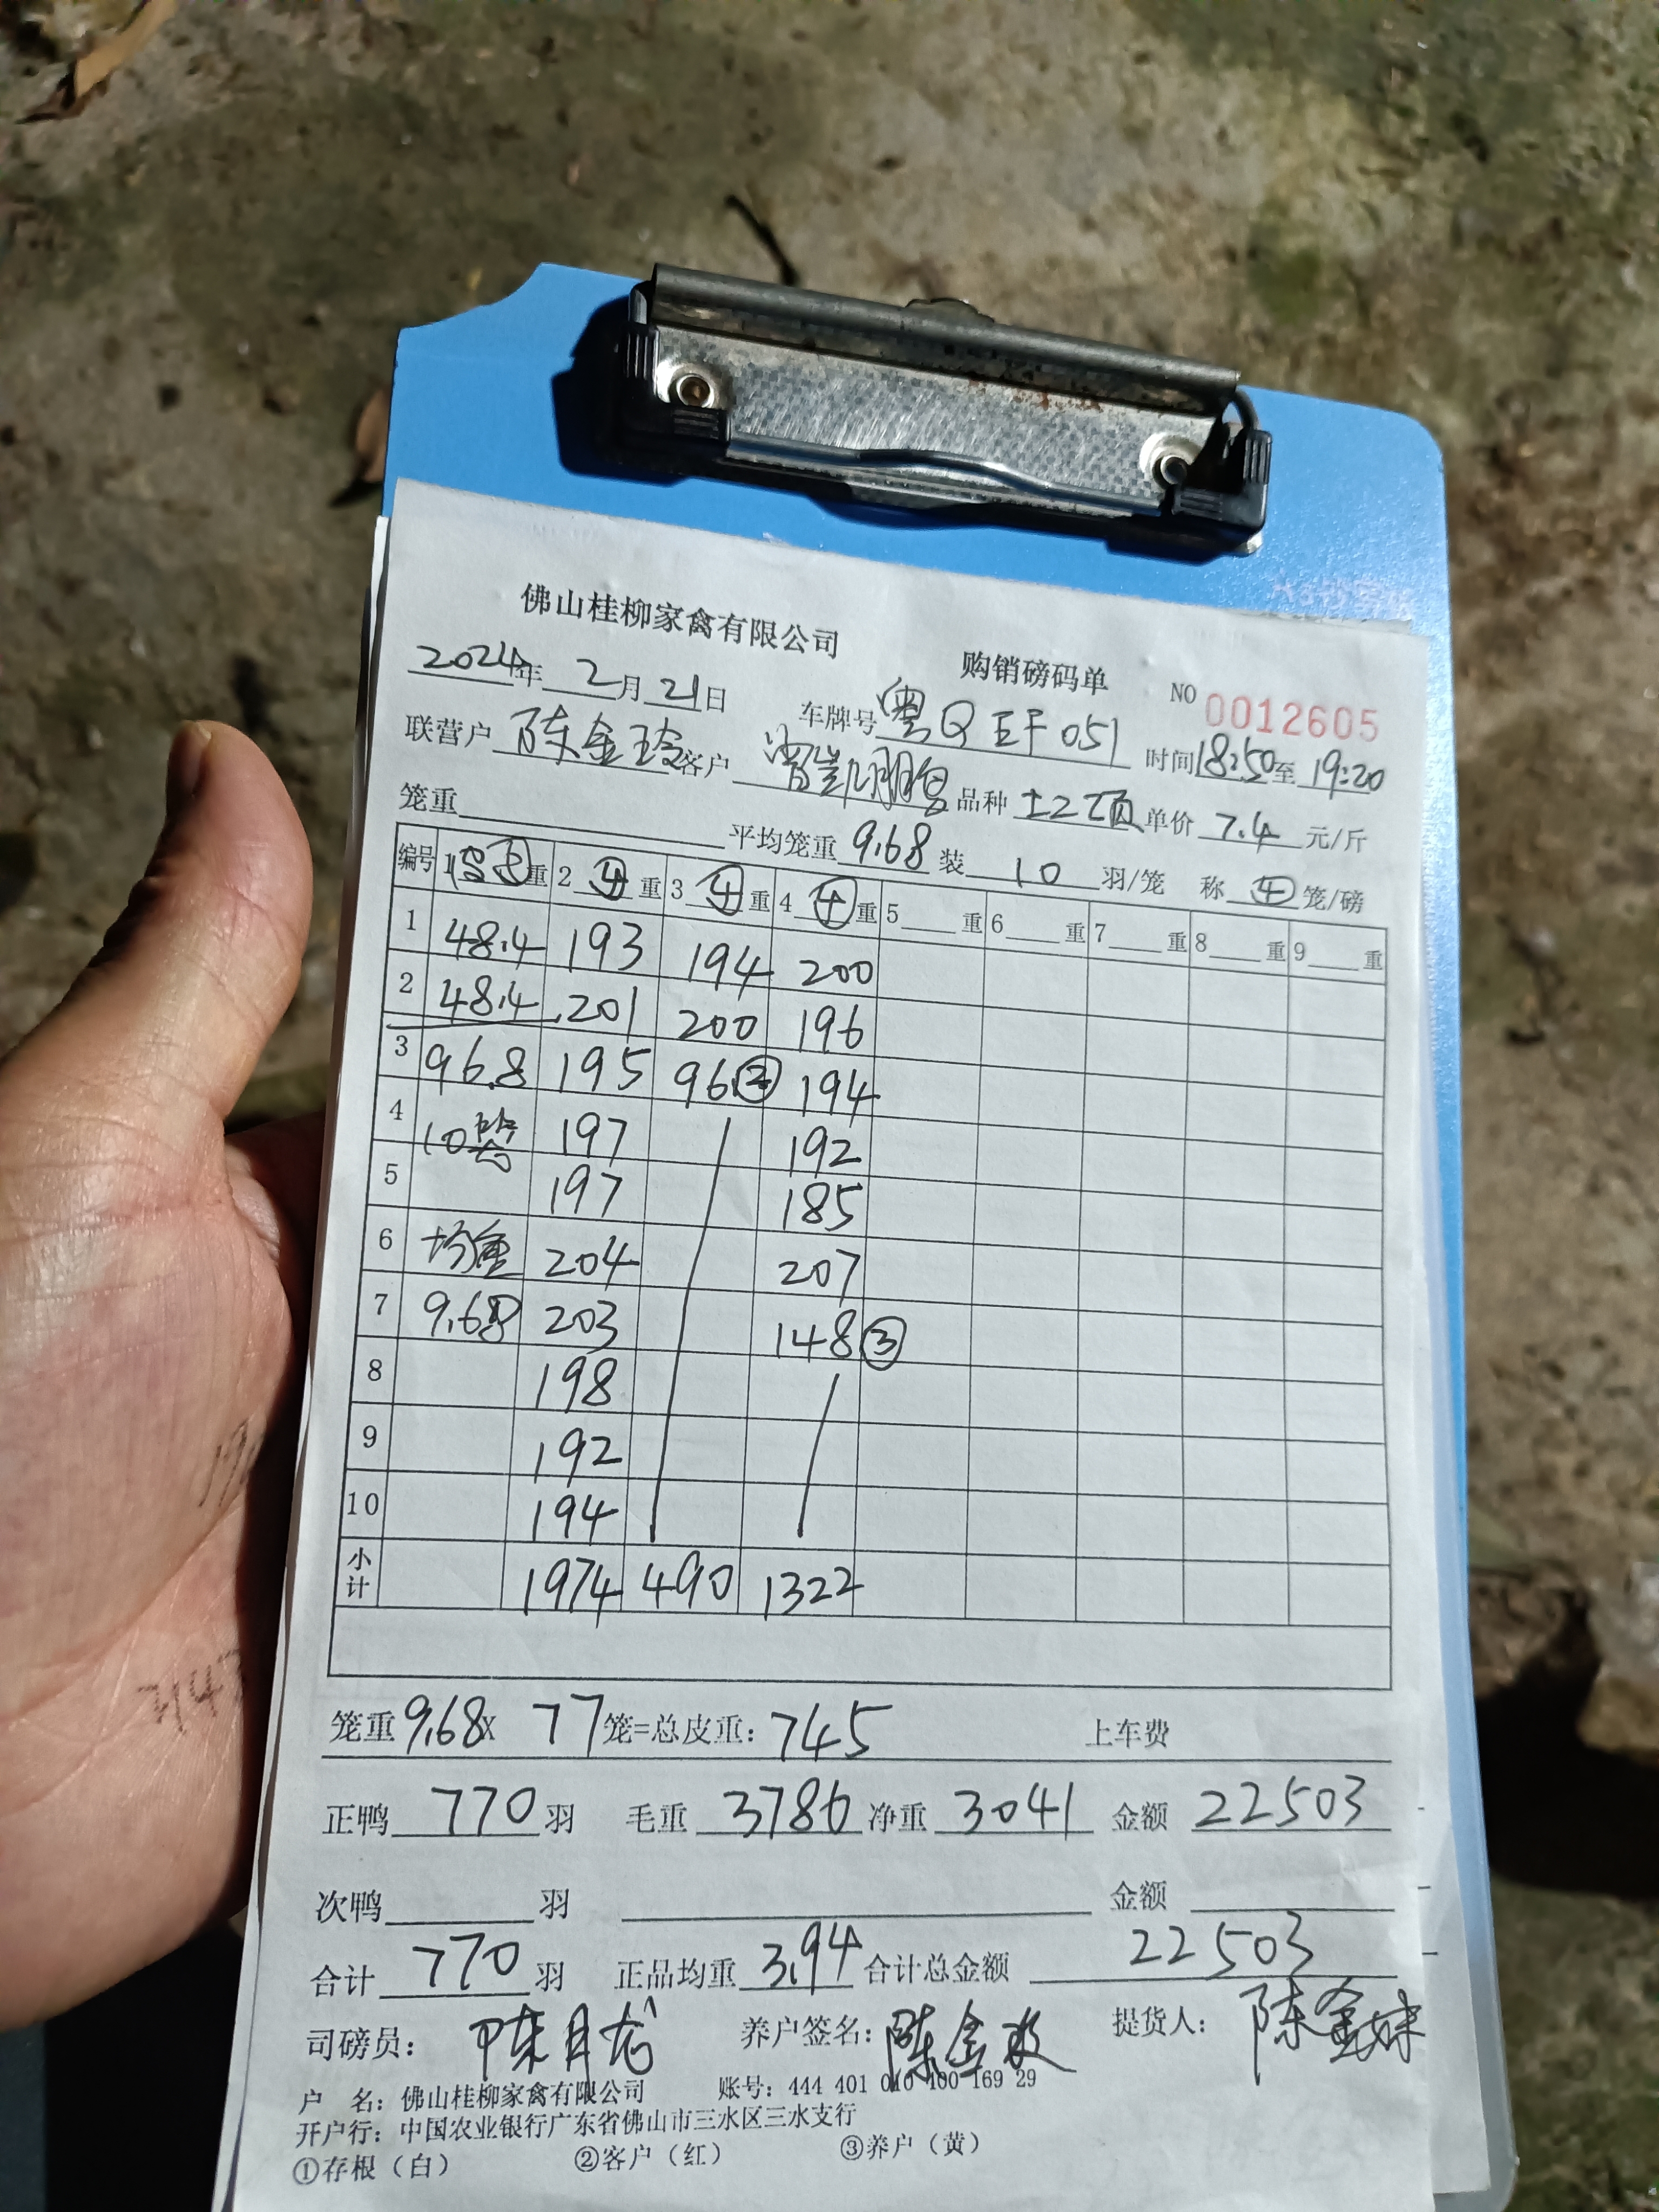 佛山桂柳家禽有限公司 购销磅码单 NO 0012605
2024年 2月21日 车牌号 粤Q EF051 时间18:50至19:20
联营户 陈金玲 客户 品种 土2项 单价 7.4 元/斤
笼重 平均笼重 9.68 装 10 羽/笼 称 ④ 笼/磅
编号 1 空⑤重 2 ④ 重 3 ④ 重 4 ④ 重 5 重 6 重 7 重 8 重 9 重
1 48.4 193 194 200
2 48.4 201 200 196
3 96.8 195 96② 194
4 10笼 197 192
5 197 185
6 均重 204 207
7 9.68 203 148③
8 198
9 192
10 194
小计 1974 490 1322
笼重9.68X 77笼=总皮重：745 上车费
正鸭 770 羽 毛重 3786 净重 3041 金额 22503
次鸭 羽 金额
合计 770 羽 正品均重 3.94 合计总金额 22503
司磅员： 陈月龙 养户签名： 陈金 提货人： 陈金妹
户 名：佛山桂柳家禽有限公司 账号：444 401 010 400 169 29
开户行：中国农业银行广东省佛山市三水区三水支行
①存根（白） ②客户（红） ③养户（黄）